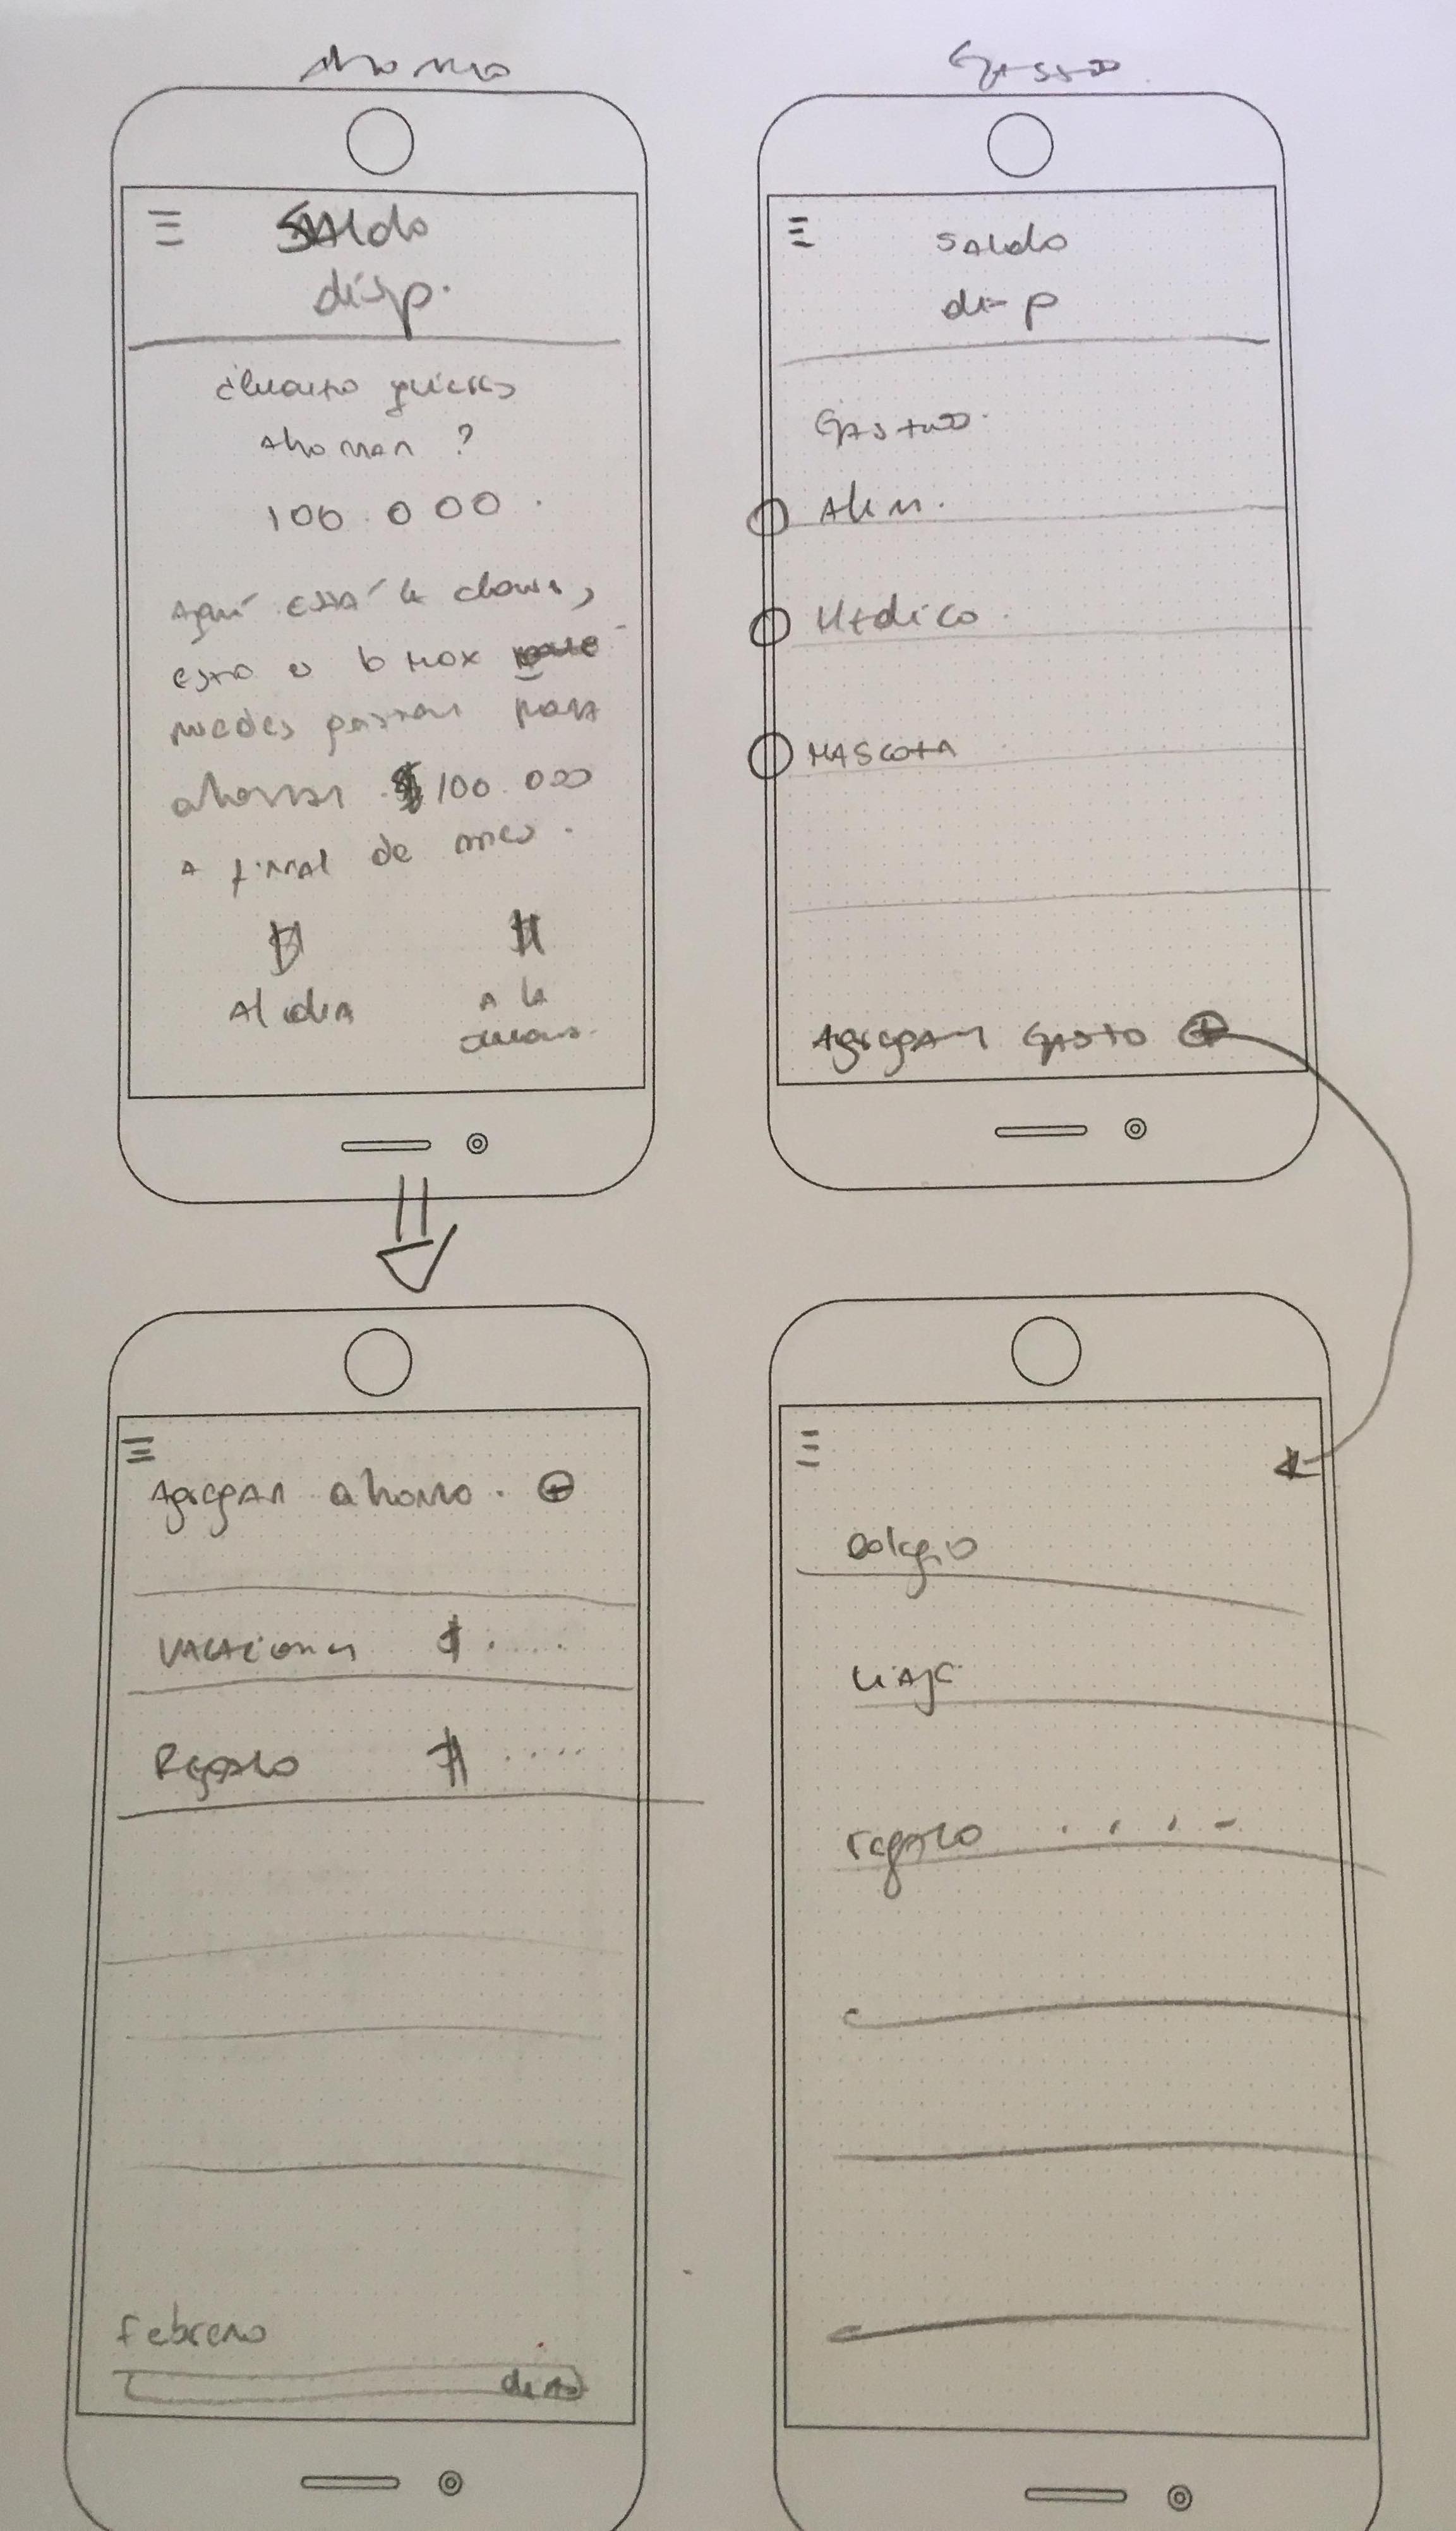 Ahorro
Gasto
SALdo
disp.
¿Cuanto quieres
Ahorrar ?
100.000.
Aquí está la clave,
esto es lo max
puedes gastar para
ahorrar $100.000
A final de mes.
$
$
Al dia
A la
SALdo
disp
GASto
Alim.
Médico
MASCOTA
Agregar GASto +
Agregar ahorro. +
VACACiones $.....
Regalo $.....
febrero
dias
Colegio
Viaje
regalo ....